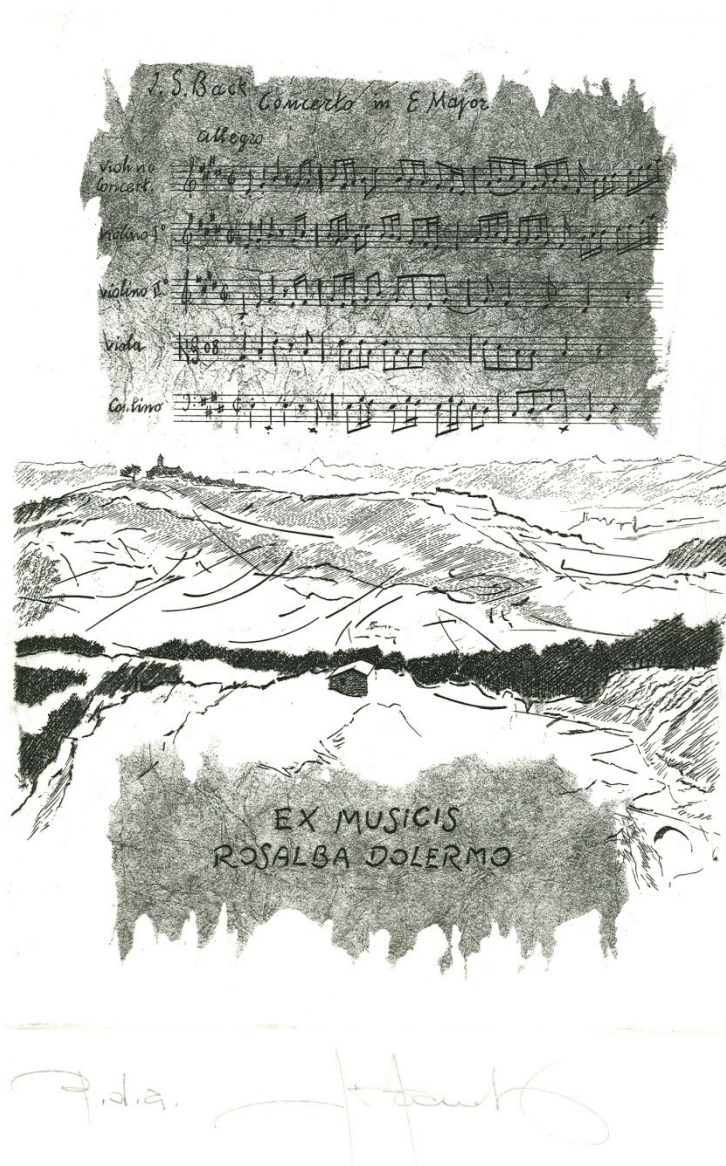 J. S. Bach
Concerto in E Major
allegro
violino
Concert.
violino I°
violino II°
viola
Contino
EX MUSICIS
ROSALBA DOLERMO
P.d.a.